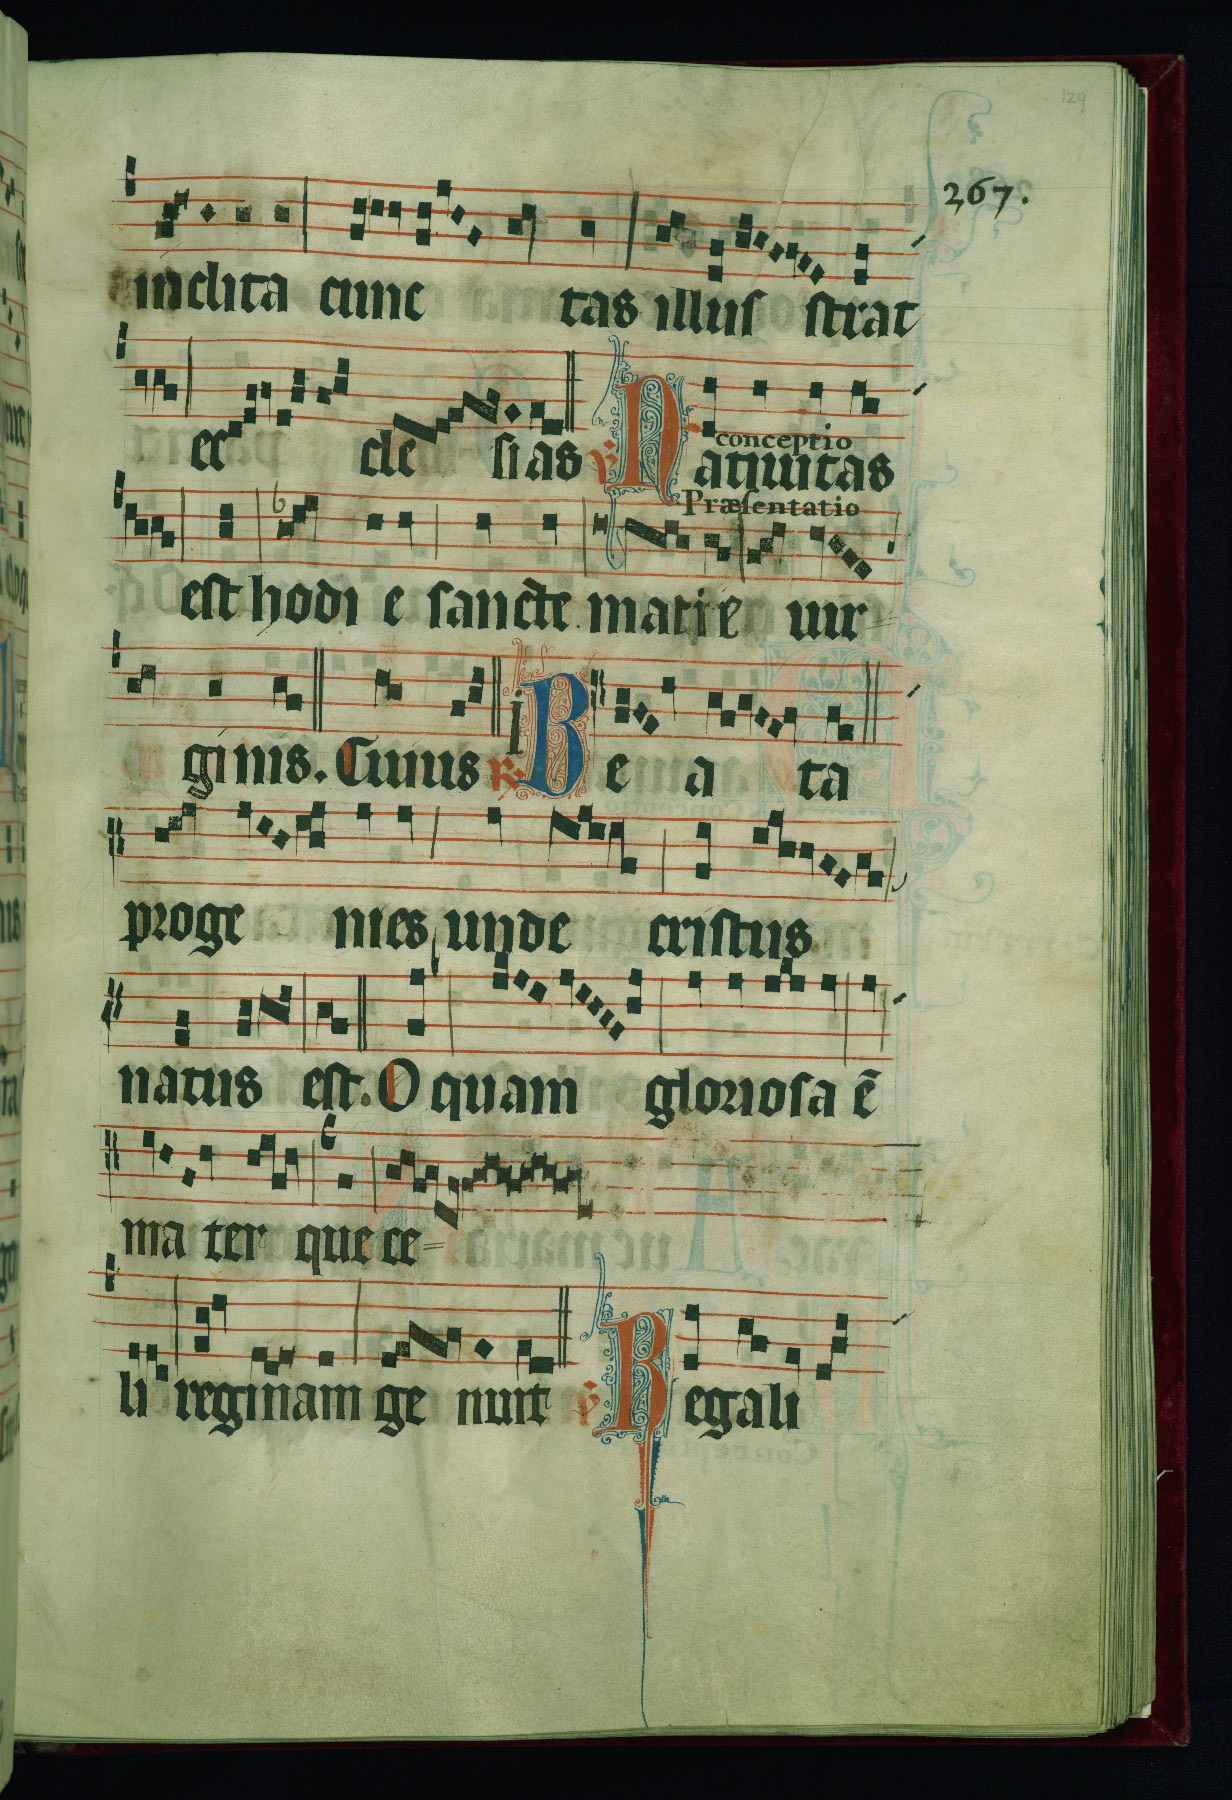 129
267.
inclita cunc tas illus strat
ec cle sias ℣ Natiuitas
conceptio
Præsentatio
est hodi e sancte matris uir
ginis. Cuius ℟. Be a ta
proge nies unde cristus
natus est. O quam gloriosa ē
ma ter que ce=
li reginam ge nuit ℣ Regali